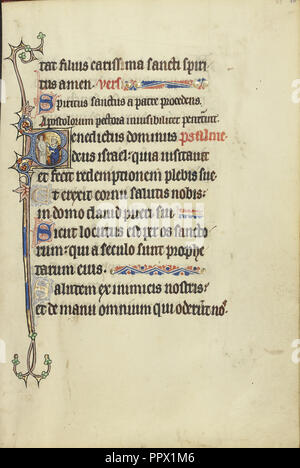 tat filius carissima sancti spiri
tus amen. vers
Spiritus sanctus a patre procedens.
Apostolorum pectora invisibiliter penetravit.
Benedictus dominus psalme
deus israel: quia visitavit
et fecit redemptionem plebis sue
Et erexit cornu salutis nobis:
in domo david pueri sui
Sicut locutus est per os sancto
rum: qui a seculo sunt prophe
tarum eius.
Salutem ex inimicis nostris:
et de manu omnium qui oderunt nos.
alamy
PPX1M6